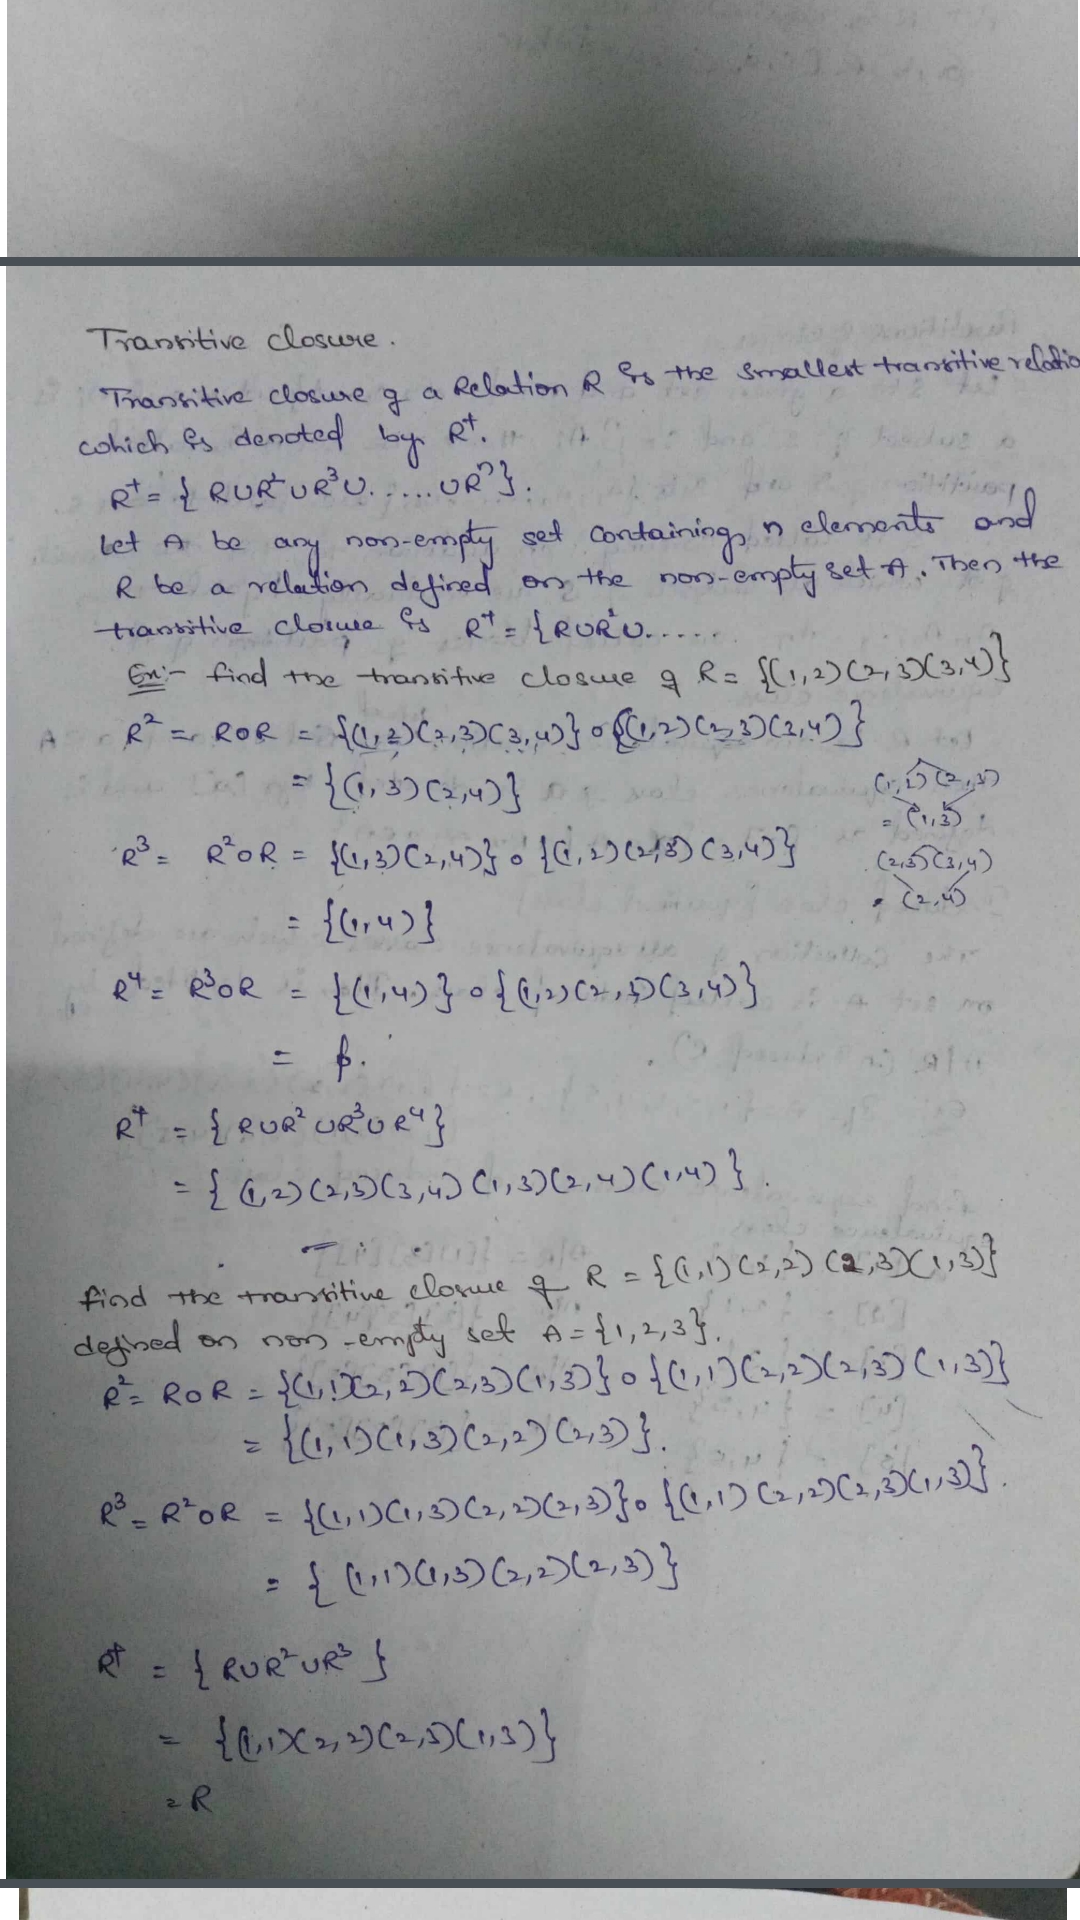 Transitive closure.
Transitive closure of a Relation R is the smallest transitive relatio
which is denoted by R⁺.
R⁺ = { R∪R²∪R³∪......∪Rⁿ}.
Let A be any non-empty set containing n elements and
R be a relation defined on the non-empty set A. Then the
transitive closure is R⁺ = {R∪R²∪.....
Ex:- find the transitive closure of R = {(1,2)(2,3)(3,4)}
R² = R∘R = {(1,2)(2,3)(3,4)}∘{(1,2)(2,3)(3,4)}
= {(1,3)(2,4)}
(1,2)(2,3)
= (1,3)
R³ = R²∘R = {(1,3)(2,4)}∘{(1,2)(2,3)(3,4)}
(2,3)(3,4)
= (2,4)
= {(1,4)}
R⁴ = R³∘R = {(1,4)}∘{(1,2)(2,3)(3,4)}
= ϕ.
R⁺ = { R∪R²∪R³∪R⁴}
= { (1,2)(2,3)(3,4)(1,3)(2,4)(1,4)}.
find the transitive closure of R = {(1,1)(2,2)(2,3)(1,3)}
defined on non-empty set A = {1,2,3}.
R² = R∘R = {(1,1)(2,2)(2,3)(1,3)}∘{(1,1)(2,2)(2,3)(1,3)}
= {(1,1)(1,3)(2,2)(2,3)}.
R³ = R²∘R = {(1,1)(1,3)(2,2)(2,3)}∘{(1,1)(2,2)(2,3)(1,3)}.
= { (1,1)(1,3)(2,2)(2,3)}
R⁺ = { R∪R²∪R³ }
= {(1,1)(2,2)(2,3)(1,3)}
= R